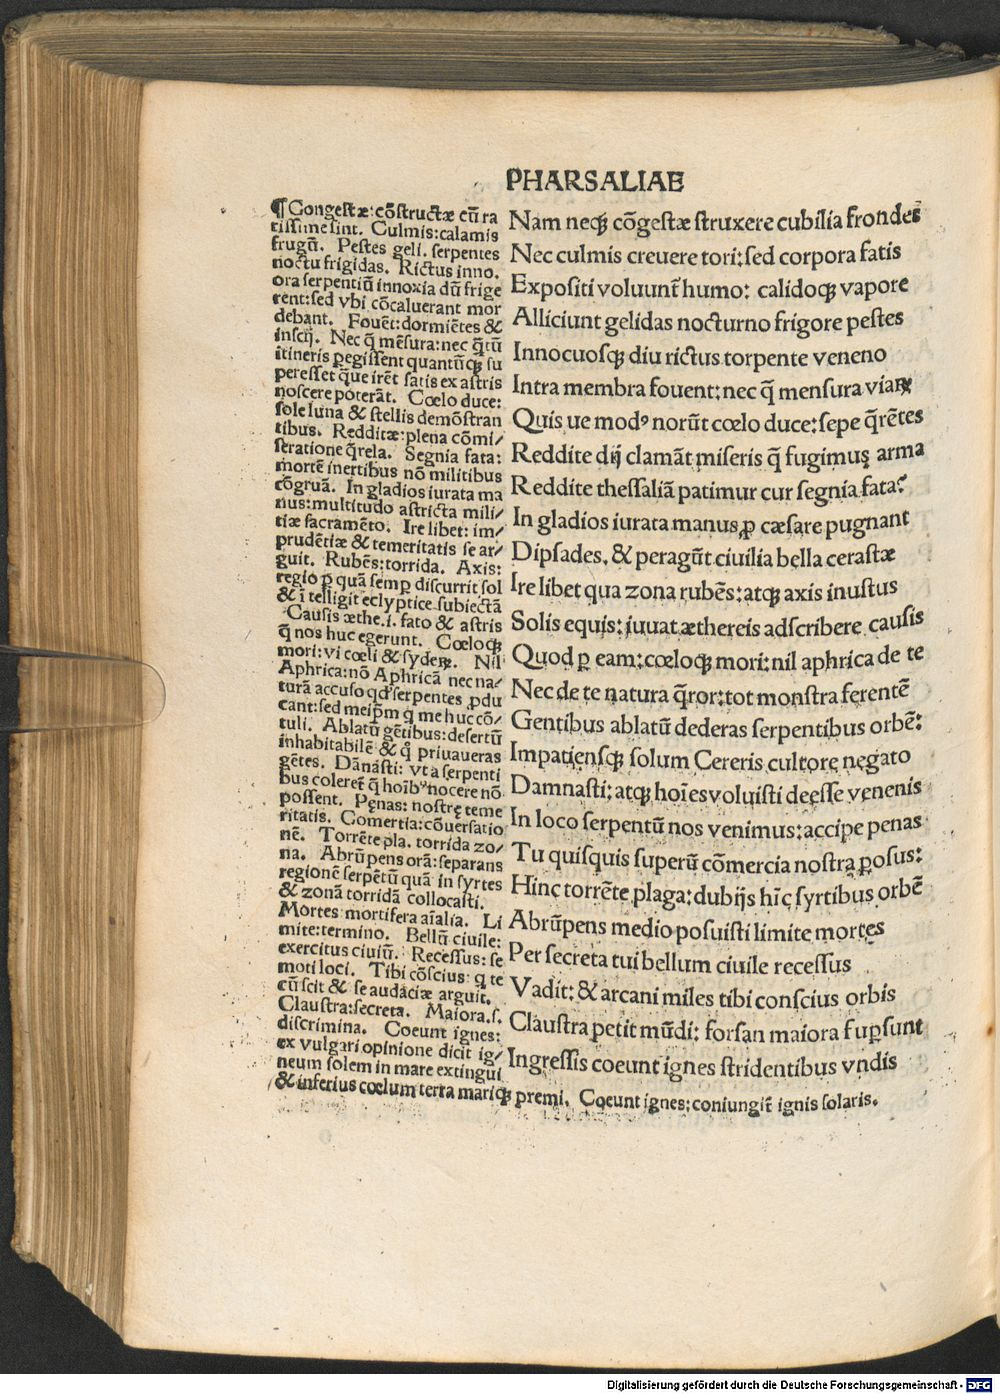 PHARSALIAE
¶Congestæ:cõstructæ cũ ra
tissime sint. Culmis:calamis
frugũ. Pestes geli. serpentes
noctu frigidas. Rictus inno.
ora serpentiũ innoxia dũ frige
rent:sed vbi cõcaluerant mor
debant. Fouẽt:dormiẽtes &
inscij. Nec q̃ mẽsura:nec q̃tũ
itineris ꝑegissent quantũqꝫ su
peresset q̃ue irẽt satis ex astris
noscere poterãt. Cœlo duce:
sole luna & stellis demõstran
tibus. Redditæ:plena cõmi/
seratione q̃rela. Segnia fata:
mortẽ inertibus nõ militibus
cõgruã. In gladios iurata ma
nus:multitudo astricta mili/
tiæ sacramẽto. Ire libet: im/
prudẽtiæ & temeritatis se ar/
guit. Rubẽs:torrida. Axis:
regio ꝑ quã semꝑ discurrit sol
& ĩtelligit eclyptice subiectã
Causis æthe.i. fato & astris
q̃ nos huc egerunt. Cœloqꝫ
mori:vi cœli & syderꝝ. Nil
Aphrica:nõ Aphricã nec na/
turã accuso qđ serpentes ꝓdu
cant:sed meip̃m q̃ me huc cõ/
tuli. Ablatũ gẽtibus:desertũ
inhabitabilẽ & q̃ priuaueras
gẽtes. Dãnasti: vt a serpenti
bus coleret̃ q̃ hoĩbꝰ nocere nõ
possent. Penas: nostrę teme
ritatis. Comertia:cõuersatio
nẽ. Torrẽte pla. torrida zo/
na. Abrũpens orã:separans
regionẽ serpẽtũ quã in syrtes
& zonã torridã collocasti.
Mortes mortifera aĩalia. Li
mite:termino. Bellũ ciuile:
exercitus ciuiũ. Recessus: se
moti loci. Tibi cõscius: q te
cũ scit & se audaciæ arguit.
Claustra:secreta. Maiora.s.
discrimina. Coeunt ignes:
ex vulgari opinione dicit ig/
neum solem in mare extingui
& inferius cœlum terra mariqꝫ premi. Coeunt ignes:coniungit̃ ignis solaris.
Nam neqꝫ cõgestæ struxere cubilia frondes
Nec culmis creuere tori:sed corpora fatis
Expositi voluunt̃ humo: calidoqꝫ vapore
Alliciunt gelidas nocturno frigore pestes
Innocuosqꝫ diu rictus torpente veneno
Intra membra fouent:nec q̃ mensura viaꝝ
Quis ue modꝰ norũt cœlo duce:sepe q̃rẽtes
Reddite dij clamãt miseris q̃ fugimus arma
Reddite thessaliã patimur cur segnia fata?
In gladios iurata manus,ꝓ cæsare pugnant
Dipsades, & peragũt ciuilia bella cerastæ
Ire libet qua zona rubẽs:atqꝫ axis inustus
Solis equis:iuuat æthereis adscribere causis
Quod ꝑ eam:cœloqꝫ mori:nil aphrica de te
Nec de te natura q̃ror:tot monstra ferentẽ
Gentibus ablatũ dederas serpentibus orbẽ:
Impatiensqꝫ solum Cereris cultore negato
Damnasti:atqꝫ hoĩes voluisti deesse venenis
In loco serpentũ nos venimus:accipe penas
Tu quisquis superũ cõmercia nostra ꝑosus:
Hinc torrẽte plaga:dubijs hĩc syrtibus orbẽ
Abrũpens medio posuisti limite mortes
Per secreta tui bellum ciuile recessus
Vadit:& arcani miles tibi conscius orbis
Claustra petit mũdi: forsan maiora fuꝑsunt
Ingressis coeunt ignes stridentibus vndis
Digitalisierung gefördert durch die Deutsche Forschungsgemeinschaft - DFG